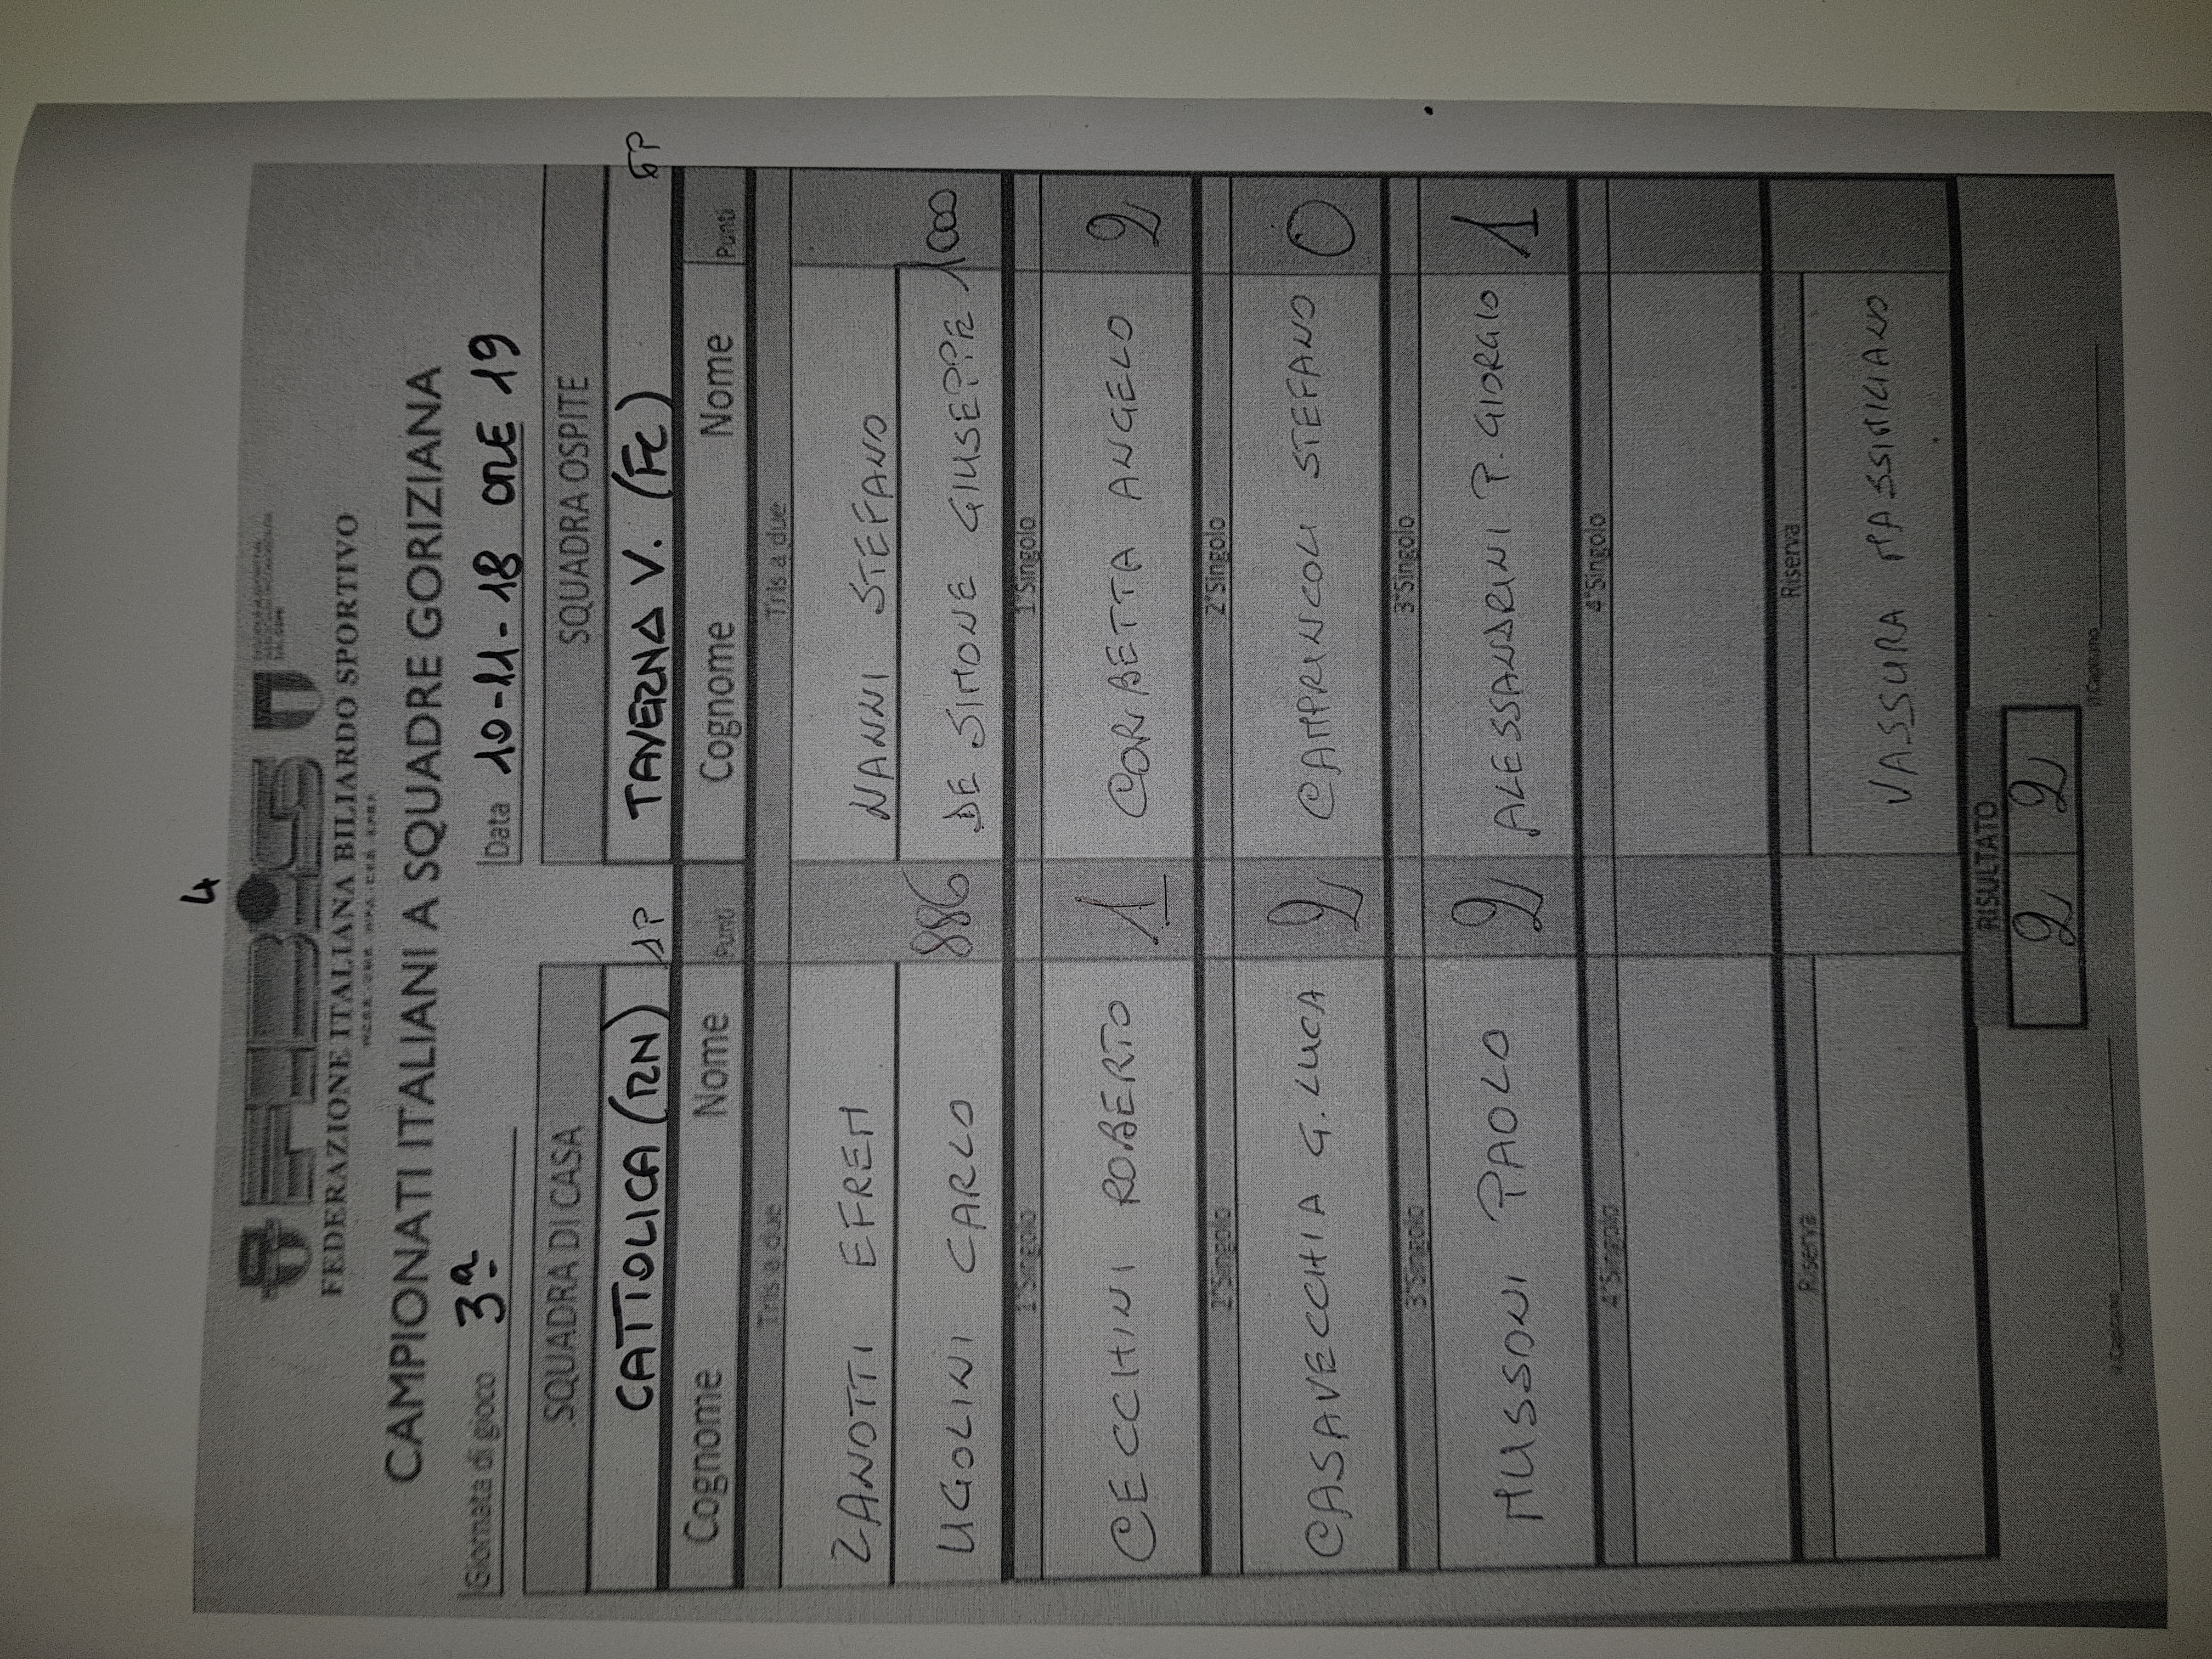 4
FEDERAZIONE ITALIANA BILIARDO SPORTIVO
CAMPIONATI ITALIANI A SQUADRE GORIZIANA
Giornata di gioco 3ª Data 10-11-18 ORE 19
SQUADRA DI CASA SQUADRA OSPITE
CATTOLICA (RN) 1P TAVERNA V. (FC)
Cognome Nome Punti Cognome Nome Punti
Tris a due Tris a due
ZANOTTI EFREM NANNI STEFANO
UGOLINI CARLO 886 DE SIMONE GIUSEPPE 1000
1°Singolo 1°Singolo
CECCHINI ROBERTO 1 CORBETTA ANGELO 2
2°Singolo 2°Singolo
CASAVECCHIA G.LUCA 2 CAMPRINCOLI STEFANO 0
3°Singolo 3°Singolo
MUSSONI PAOLO 2 ALESSANDRINI P.GIORGIO 1
4°Singolo 4°Singolo
Riserva Riserva
VASSURA MASSIMILIANO
RISULTATO
2 2
Il Capitano Il Capitano